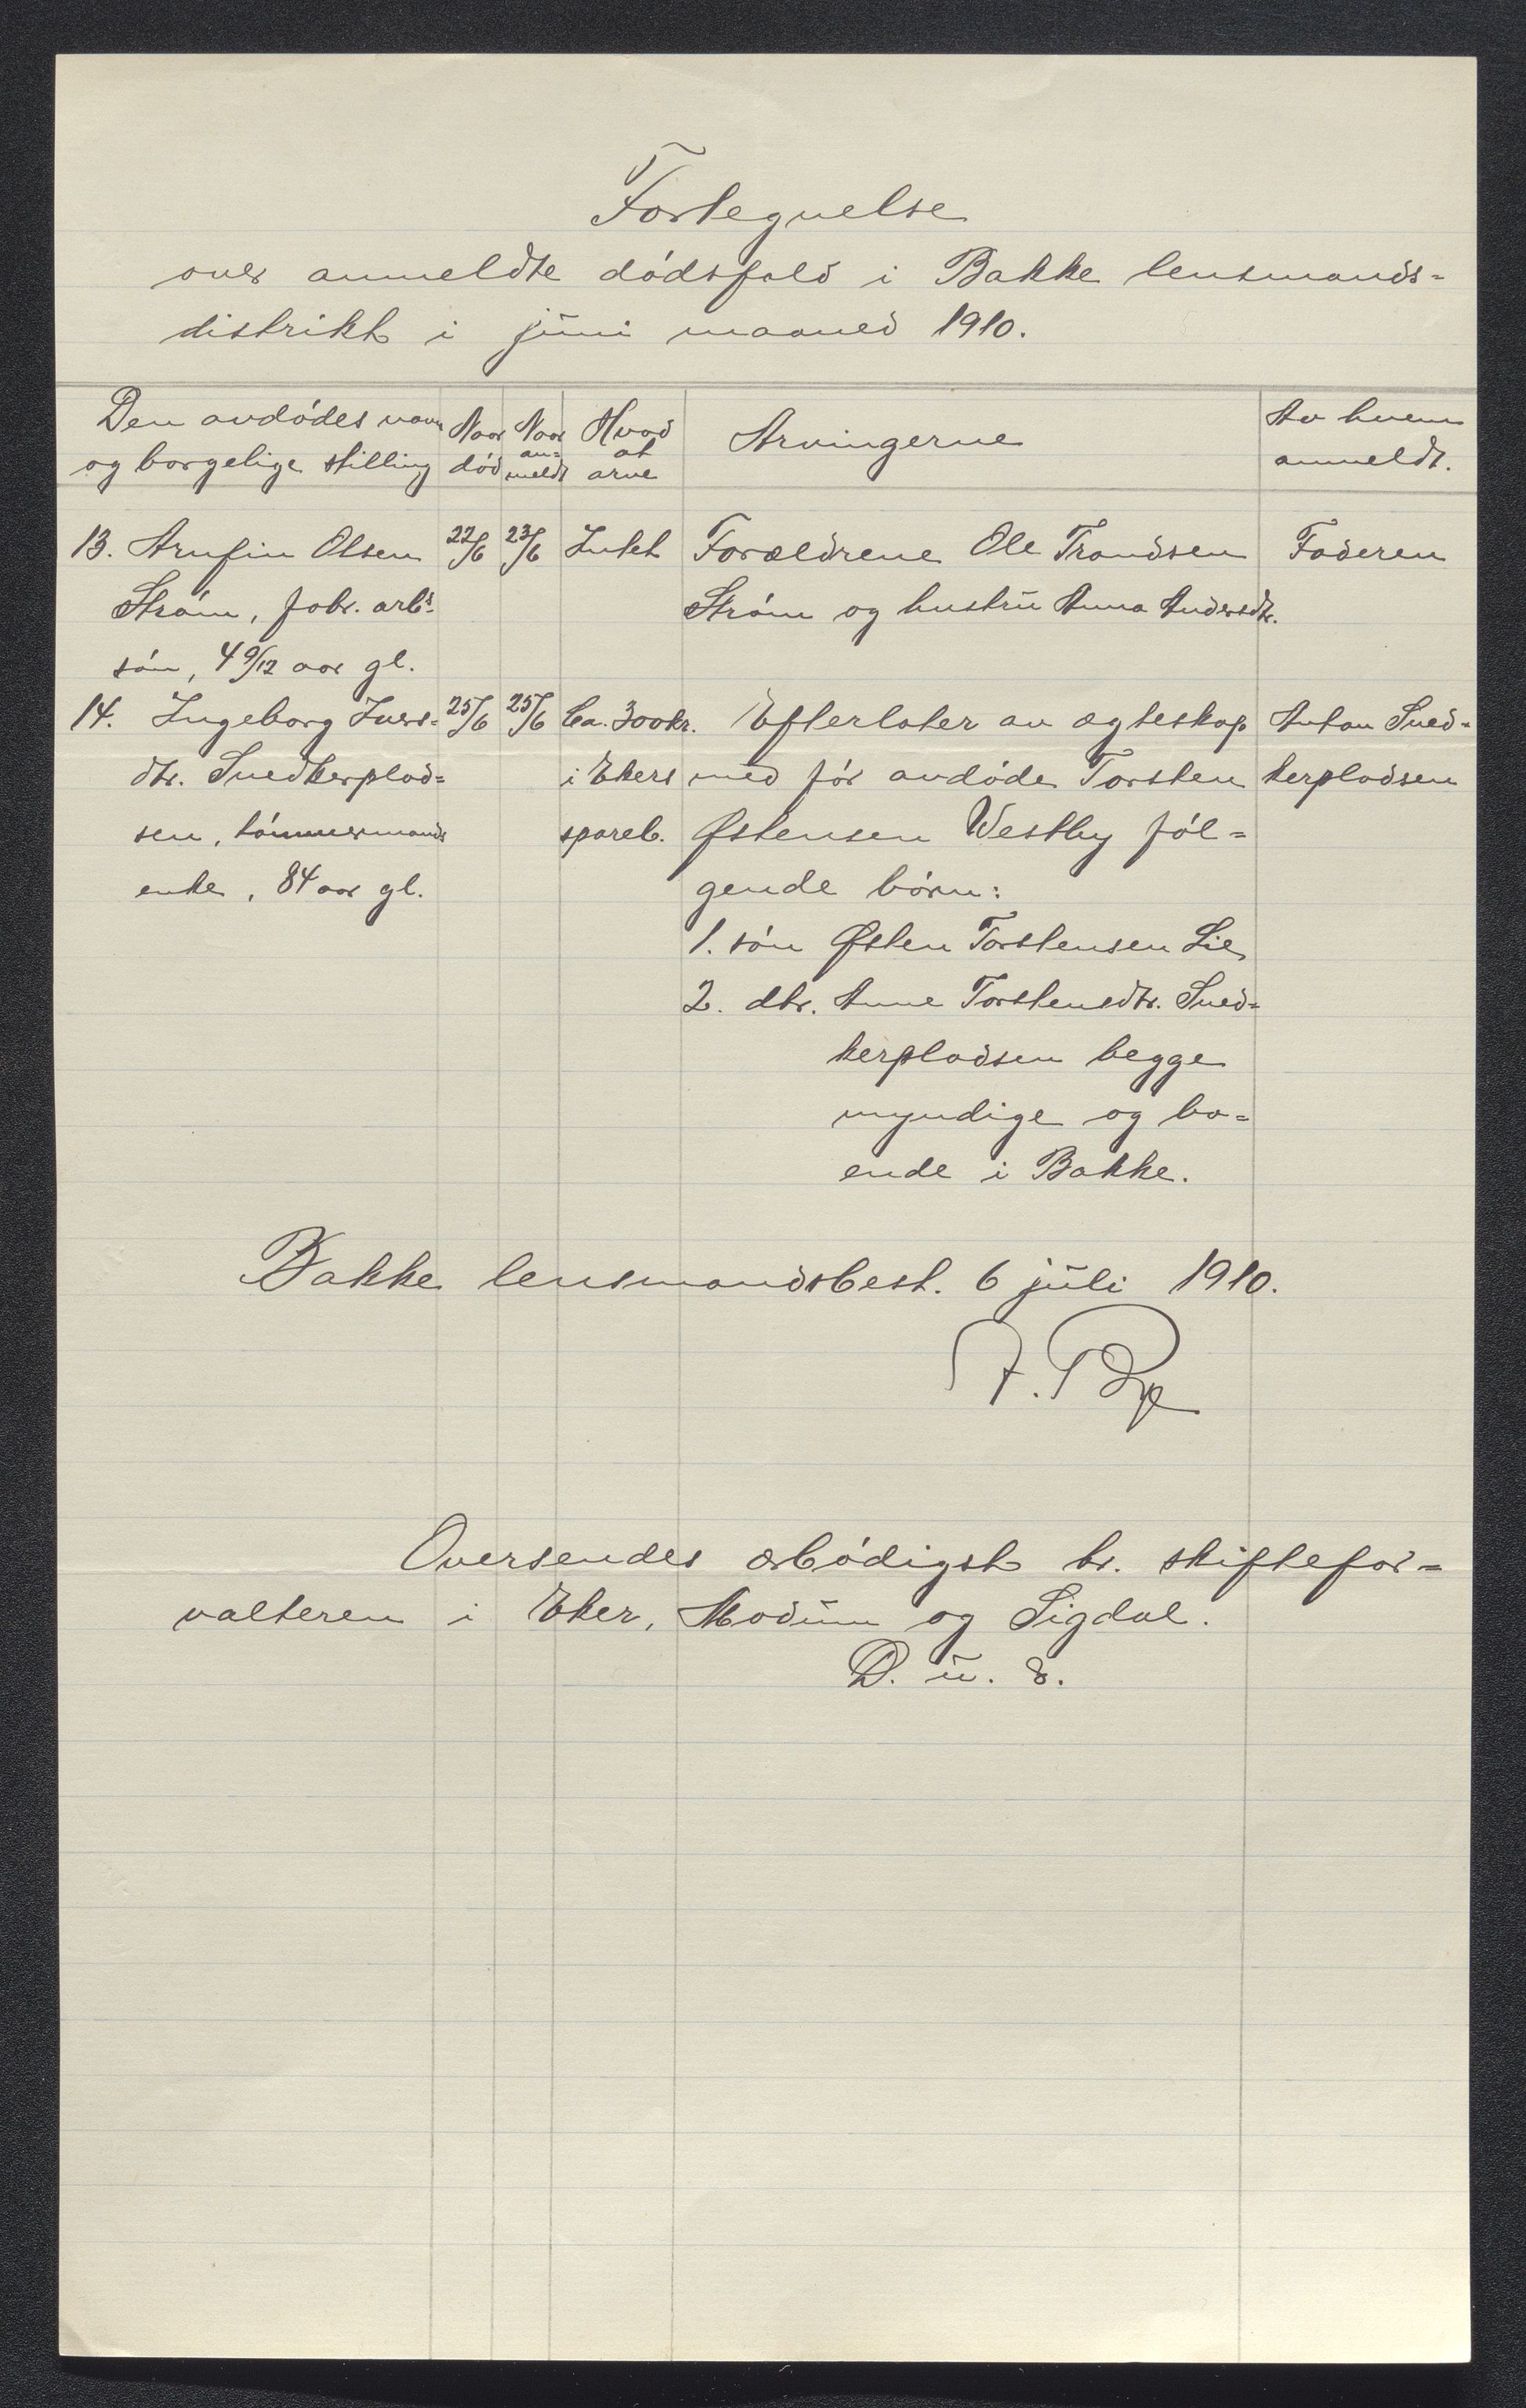 Fortegnelse
over anmeldte dödsfald i Bakke lensmands=
distrikt i juni maaned 1910.
Den avdödes navn og borgelige stilling
Naar död
Naar an= meldt
Hvad at arve
Arvingerne
Av hvem anmeldt.
13. Arnfin Olsen 22/6 23/6 Intet Forældrene Ole Trondsen Faderen
Ström, fabr. arb.s Ström og hustru Anna Andersdtr.
sön, 4 9/12 aar gl.
14. Ingeborg Ivers= 25/6 25/6 Ca. 300 kr. Efterlater av egteskap Anton Sned=
dtr. Snedkerplad= i Ekers med för avdöde Torsten kerpladsen
sen, tömmermands spareb. Østensen Westby föl=
enke, 84 aar gl. gende börn:
1. sön Østen Torstensen Lie
2. dtr. Anne Torstensdtr. Sned=
kerpladsen begge
myndige og bo=
ende i Bakke.
Bakke lensmandsbest. 6 juli 1910.
Oversendes ærbödigst hr. skiftefor=
valteren i Eker, Modum og Sigdal.
D. u. s.